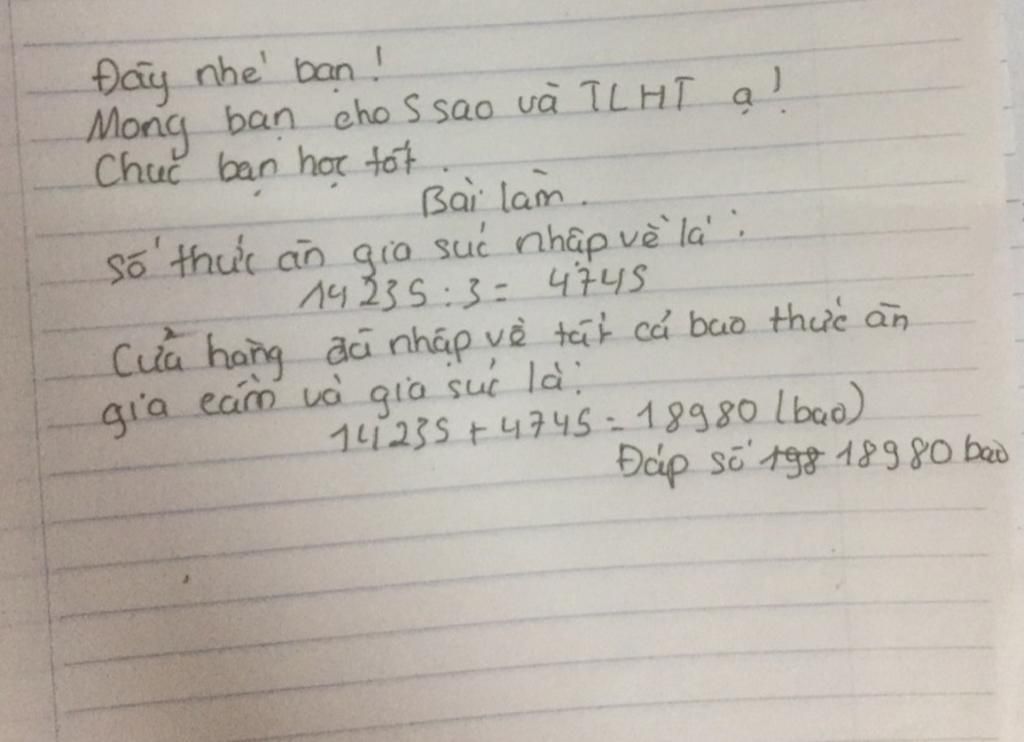 Đây nhé bạn!
Mong bạn cho 5 sao và TLHT ạ!
Chúc bạn học tốt.
Bài làm.
Số thức ăn gia súc nhập về là:
14235 : 3 = 4745
Cửa hàng đã nhập về tất cả bao thức ăn
gia cầm và gia súc là:
14235 + 4745 = 18980 (bao)
Đáp số 198 18980 bao